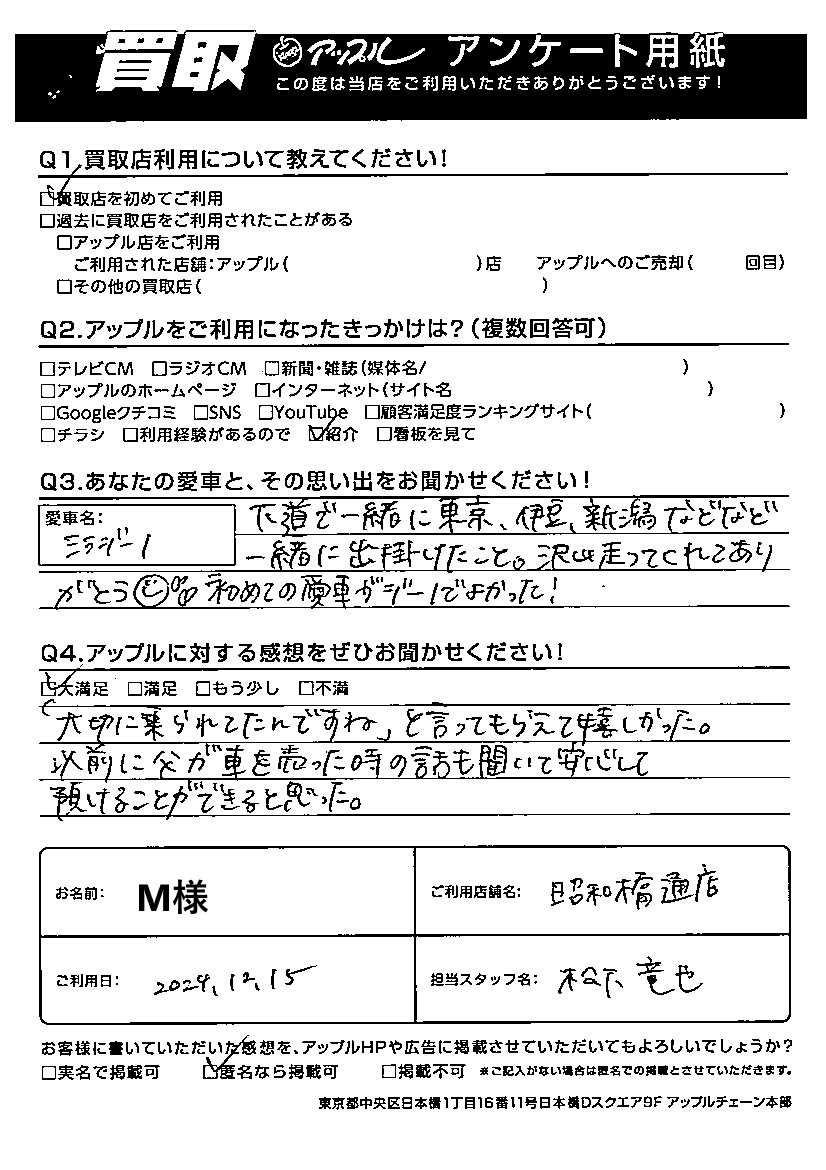 買取 アップル アンケート用紙
この度は当店をご利用いただきありがとうございます!
Q1.買取店利用について教えてください!
□買取店を初めてご利用
□過去に買取店をご利用されたことがある
□アップル店をご利用
ご利用された店舗:アップル( )店 アップルへのご売却( 回目)
□その他の買取店( )
Q2.アップルをご利用になったきっかけは?(複数回答可)
□テレビCM □ラジオCM □新聞・雑誌(媒体名/ )
□アップルのホームページ □インターネット(サイト名 )
□Googleクチコミ □SNS □YouTube □顧客満足度ランキングサイト( )
□チラシ □利用経験があるので □紹介 □看板を見て
Q3.あなたの愛車と、その思い出をお聞かせください!
愛車名:
ミラジーノ
下道で一緒に東京、伊豆、新潟などなど
一緒に出掛けたこと。沢山走ってくれてあり
がとう 初めての愛車がジーノでよかった!
Q4.アップルに対する感想をぜひお聞かせください!
□大満足 □満足 □もう少し □不満
「大切に乗られてたんですね」と言ってもらえて嬉しかった。
以前に父が車を売った時の話も聞いて安心して
預けることができると思った。
お名前: M様 ご利用店舗名: 昭和橋通店
ご利用日: 2024,12,15 担当スタッフ名: 松下 竜也
お客様に書いていただいた感想を、アップルHPや広告に掲載させていただいてもよろしいでしょうか?
□実名で掲載可 □匿名なら掲載可 □掲載不可 ※ご記入がない場合は匿名での掲載とさせていただきます。
東京都中央区日本橋1丁目16番11号日本橋Dスクエア9F アップルチェーン本部